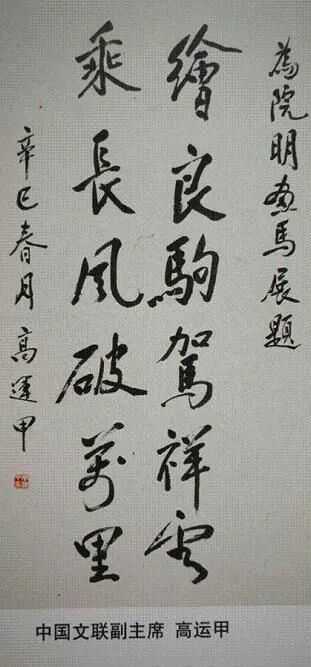 為院明畫馬展題
繪良駒駕祥雲
乘長風破萬里
辛巳春月 高運甲
中国文联副主席 高运甲